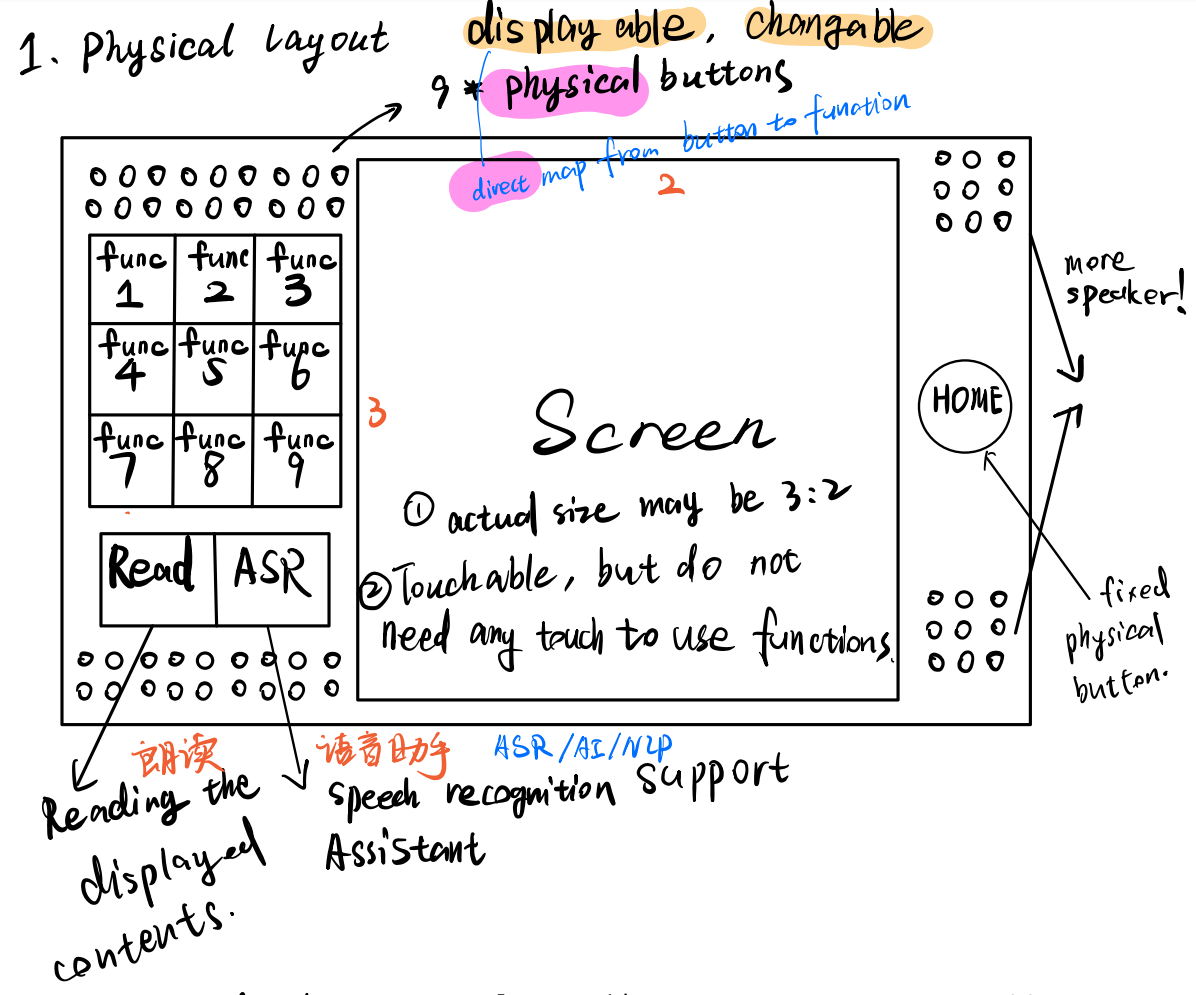 1. Physical Layout
displayable, changable
9 * physical buttons
direct map from button to function
2
func 1
func 2
func 3
func 4
func 5
func 6
func 7
func 8
func 9
3
Screen
① actual size may be 3:2
② Touchable, but do not
need any touch to use functions.
HOME
more
speaker!
fixed
physical
button.
Read
ASR
朗读
语音助手
ASR/AI/NLP
Reading the
displayed
contents.
speech recognition support
Assistant